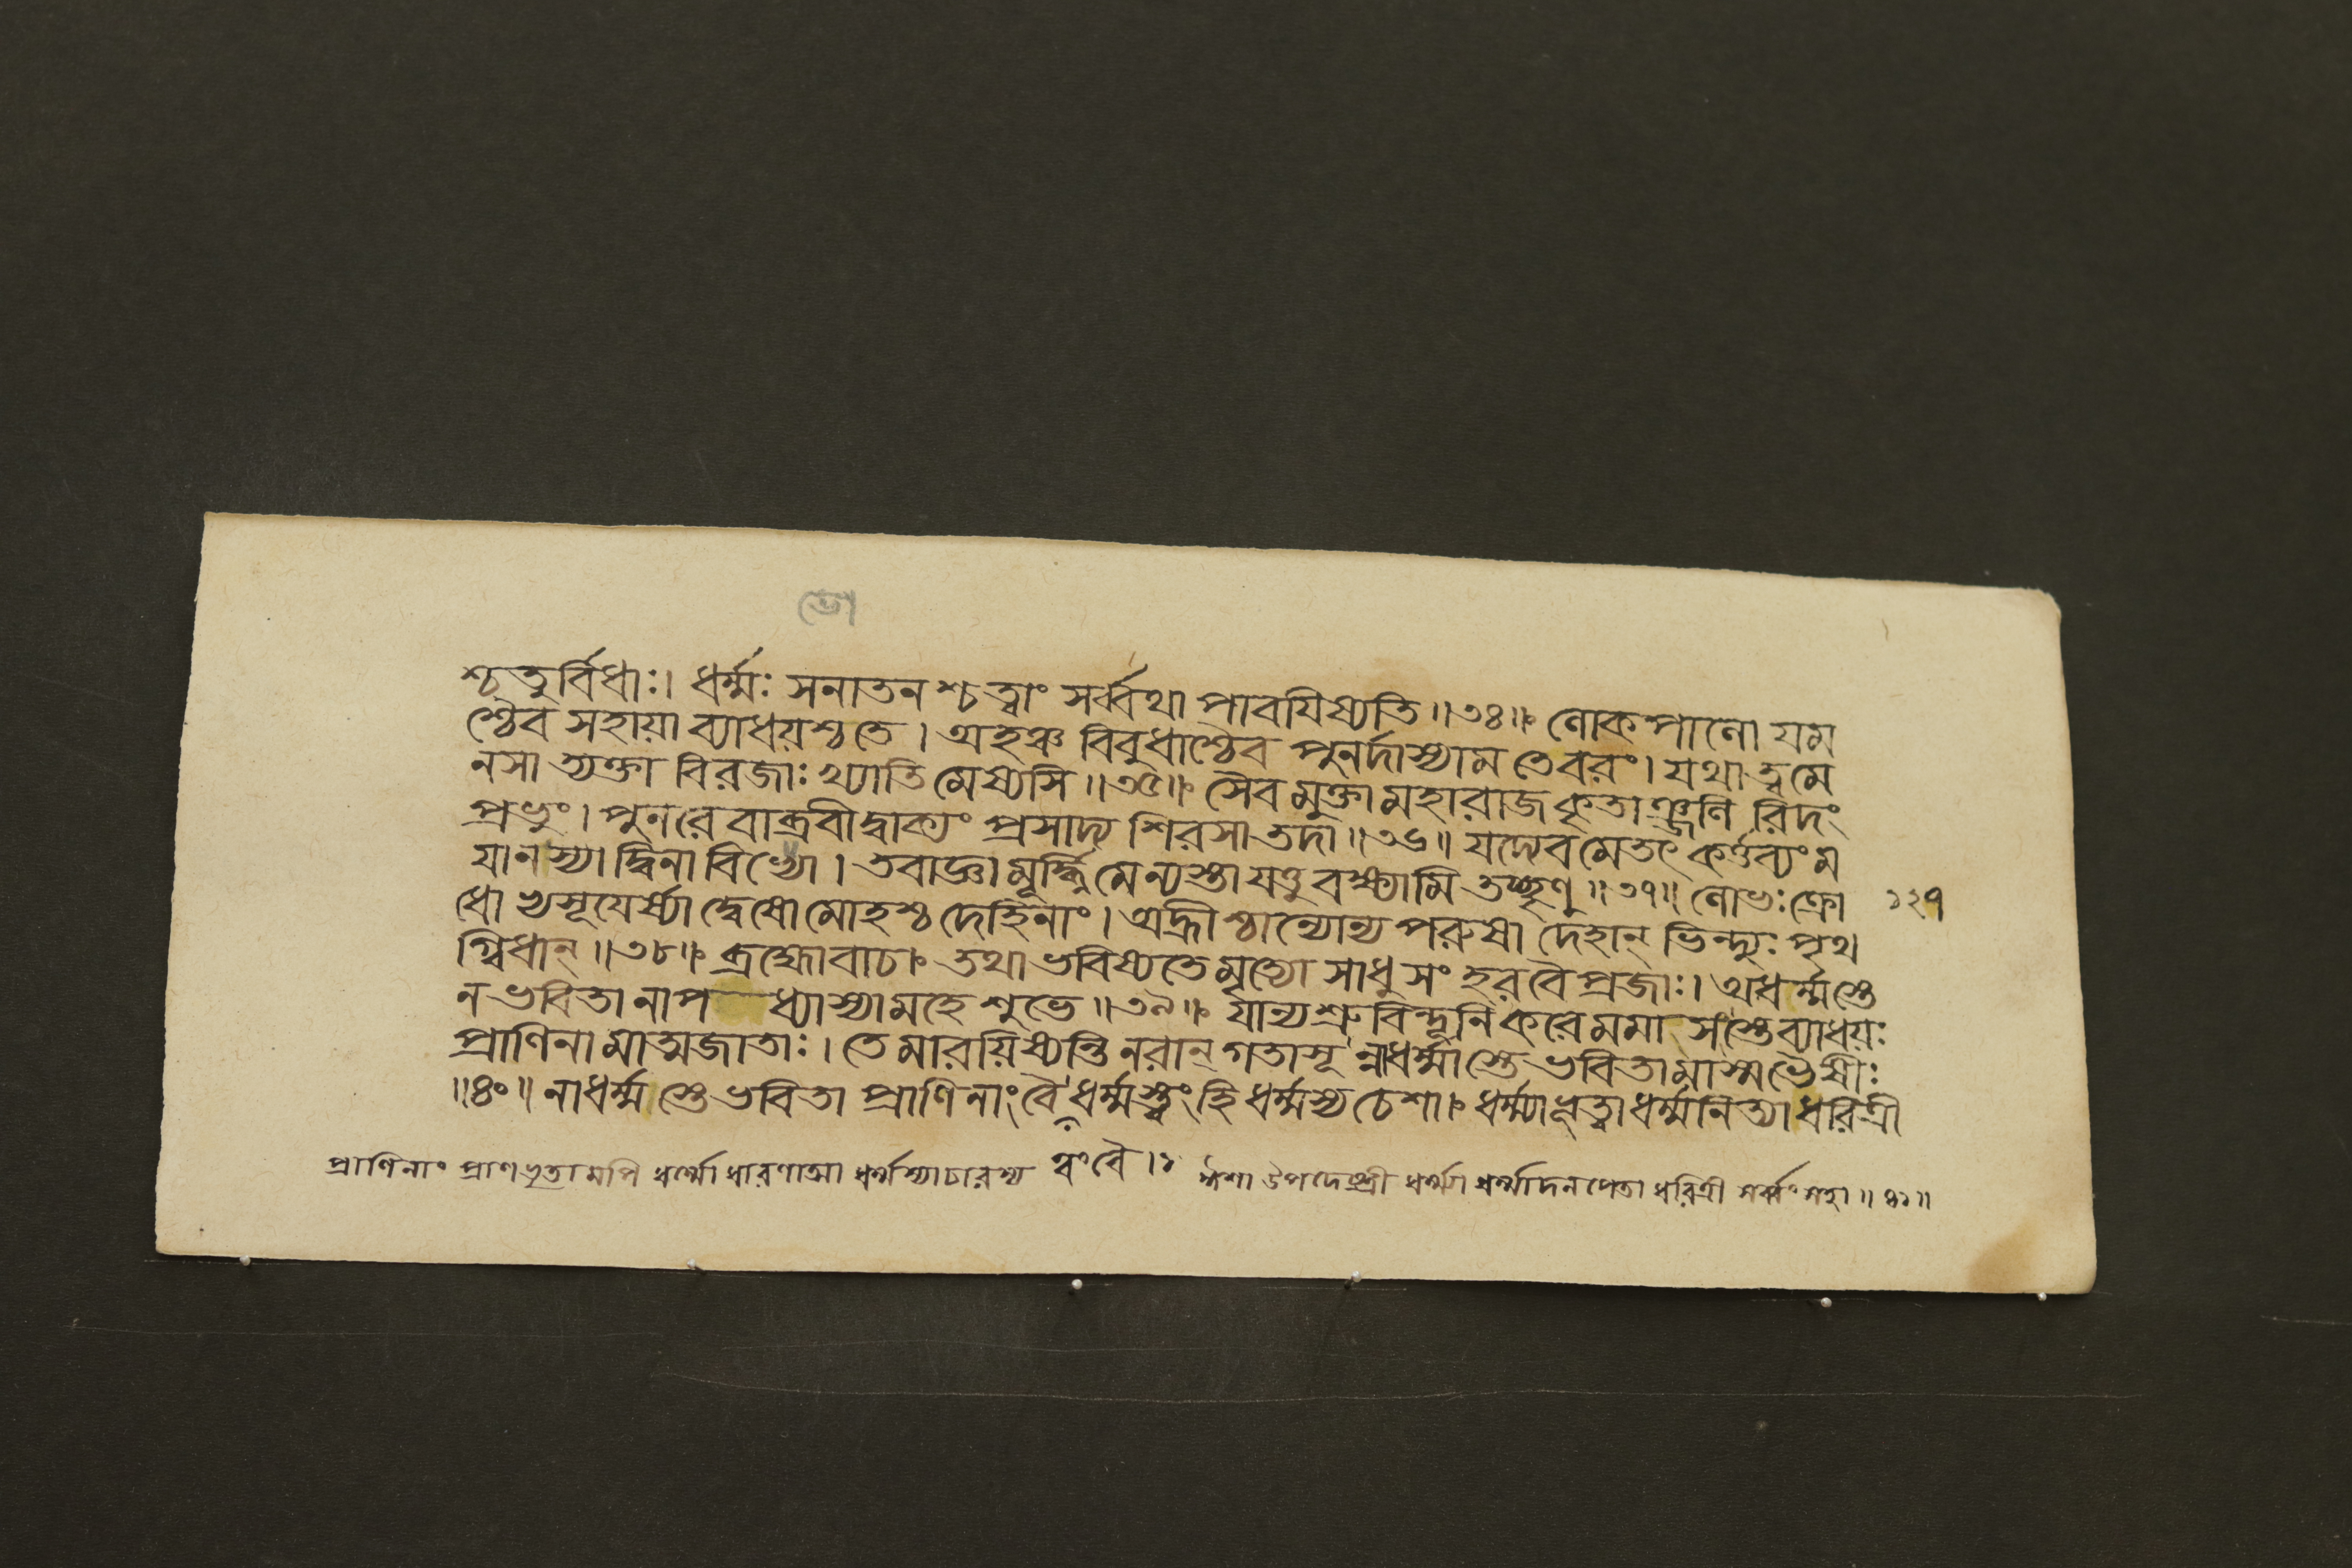 ভো
শ্চতুর্বিধাঃ। ধর্ম্মঃ সনাতনশ্চ ত্বাং সর্ব্বথা পাবযিষ্যতি॥৩৪॥ লোকপালো যম
শ্চৈব সহায়া ব্যাধয়শ্চ তে। অহঞ্চ বিবুধাশ্চৈব পুনর্দাস্যাম তে বরং। যথা ত্বমে
নসা ত্যক্তা বিরজাঃ খ্যাতিমেষ্যসি॥৩৫॥ সৈবমুক্তা মহারাজ কৃতাঞ্জলিরিদং
প্রভুং। পুনরেবাব্রবীদ্বাক্যং প্রসাদ্য শিরসা তদা॥৩৬॥ যদ্যেবমেতৎ কর্ত্তব্যং ম
যা ন স্যাদ্বিনা বিভো। তবাজ্ঞা মূর্দ্ধ্নি মে ন্যস্তা যত্তু বক্ষ্যামি তচ্ছৃণু॥৩৭॥ লোভঃ ক্রো
১২৭
ধোভ্যসূয়ের্ষ্যা দ্বেষো মোহশ্চ দেহিনাং। অহ্রীশ্চান্যোন্যপরুষা দেহান্ ভিন্দ্যুঃ পৃথ
গ্বিধান্॥৩৮॥ ব্রহ্মোবাচ॥ তথা ভবিষ্যতে মৃত্যো সাধু সংহর বৈ প্রজাঃ। অধর্ম্মস্তে
ন ভবিতা নাপ ধ্যাস্যাম্যহে শুভে॥৩৯॥ যান্যশ্রুবিন্দূনি করে মমাসংস্তে ব্যাধয়ঃ
প্রাণিনামাত্মজাতাঃ। তে মারয়িষ্যন্তি নরান্ গতাসূন্নাধর্ম্মস্তে ভবিতা মাস্ম ভৈষীঃ
॥৪০॥ নাধর্ম্মস্তে ভবিতা প্রাণিনাং বৈ ধর্ম্মস্ত্বং হি ধর্ম্মস্য চেশা॥ ধর্ম্ম্যা ভূত্বা ধর্ম্মনিত্যা ধরিত্রী
প্রাণিনাং প্রাণভৃতামপি ধর্ম্মো ধারণাত্মা ধর্ম্মস্যাচারস্য ত্বং বৈ।১ ঈশা উপদেষ্ট্রী ধর্ম্ম্যা ধর্ম্মাদনপেতা ধরিত্রী সর্ব্বংসহা॥৪১॥